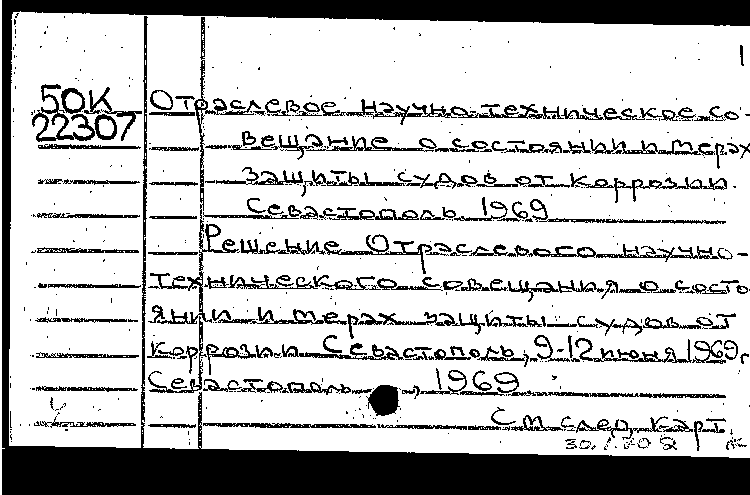 1
50К Отраслевое научно-техническое со-
22307 вещание о состоянии и мерах
защиты судов от коррозии.
Севастополь 1969
Решение Отраслевого научно-
технического совещания о состо
янии и мерах защиты судов от
коррозии Севастополь, 9-12 июня 1969г
Севастополь, 1969
См след карт.